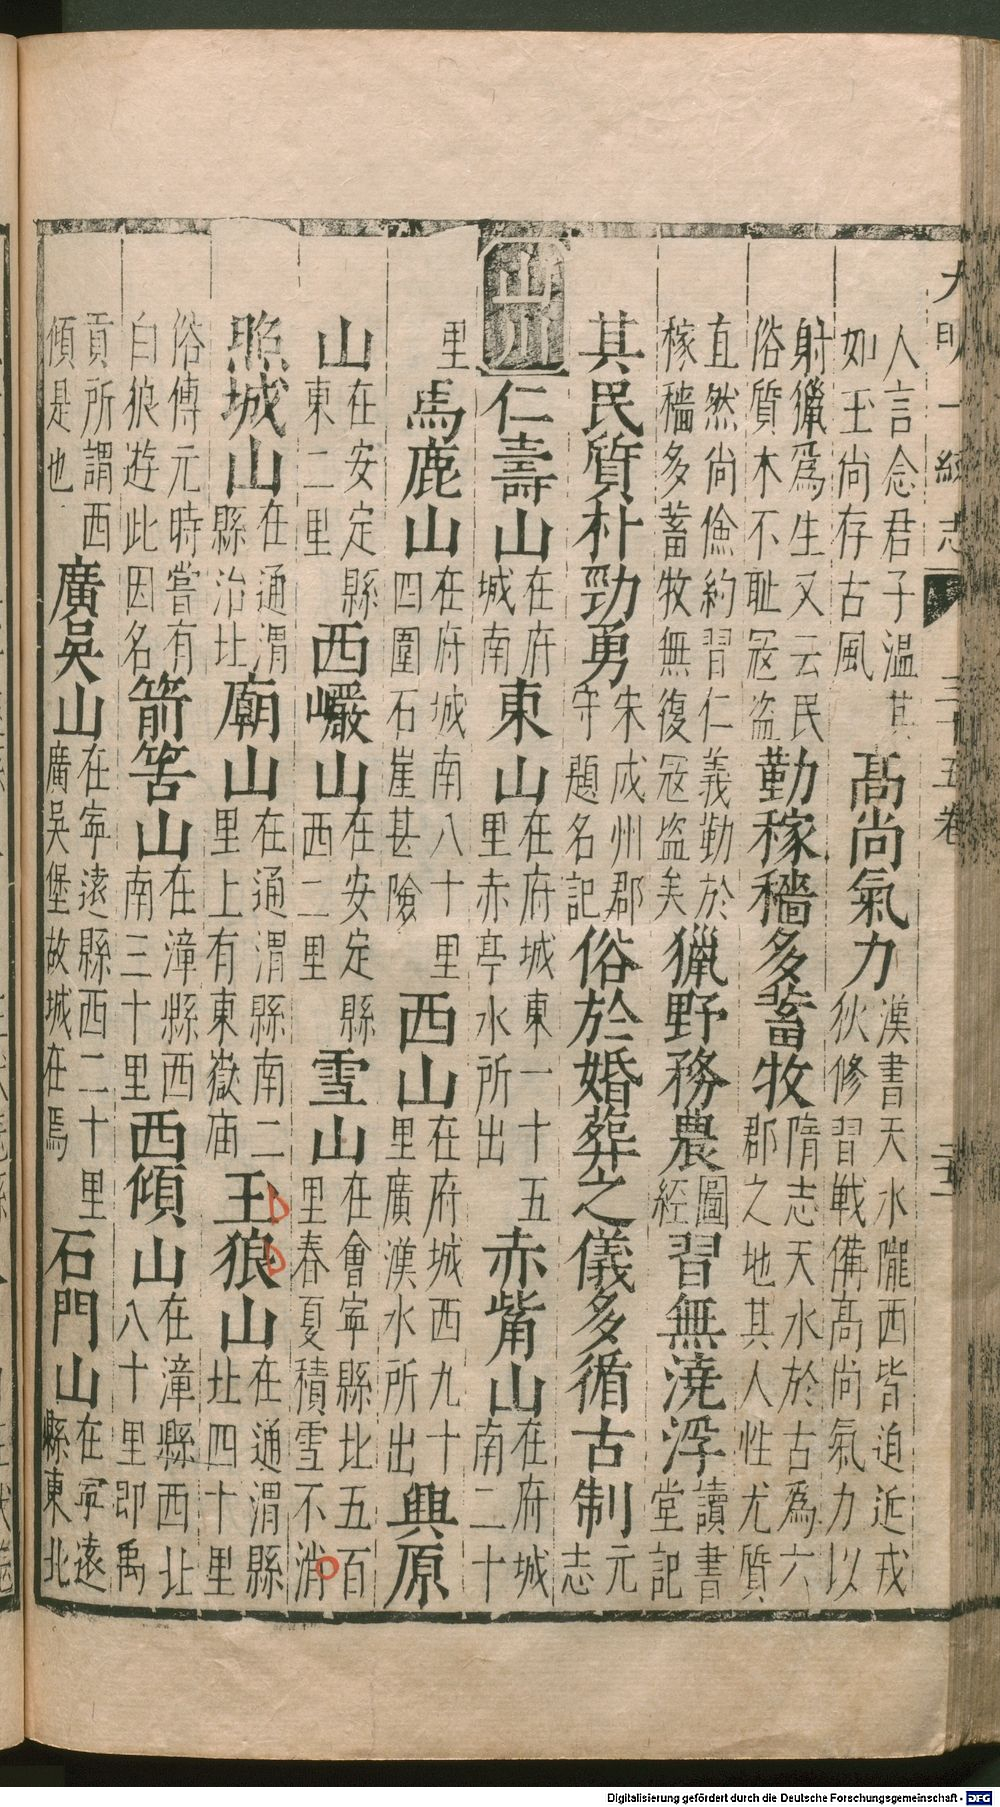 大明一統志 三十五卷 二五
人言念君子温其如玉尚存古風 高尚氣力 漢書天水隴西皆迫近戎狄修習戰備高尚氣力以
射獵爲生又云民俗質木不耻冦盗 勤稼穡多蓄牧 隋志天水於古爲六郡之地其人性尤質
直然尚儉約習仁義勤於稼穡多蓄牧無復冦盗矣 獵野務農 圖經 習無澆浮 讀書堂記
其民質朴勁勇 朱成州郡守題名記 俗於婚葬之儀多循古制 元志
山川 仁壽山 在府城南 東山 在府城東一十五里赤亭水所出 赤觜山 在府城南二十
里 馬鹿山 在府城南八十里四圍石崖甚險 西山 在府城西九十里廣漢水所出 興原
山 在安定縣東二里 西巗山 在安定縣西二里 雪山 在會寜縣北五百里春夏積雪不消
照城山 在通渭縣治北 廟山 在通渭縣南二里上有東嶽庙 玉狼山 在通渭縣北四十里
俗傳元時嘗有白狼遊此因名 箭筈山 在漳縣西南三十里 西傾山 在漳縣西北八十里即禹
貢所謂西傾是也 廣吳山 在寜遠縣西二十里廣吳堡故城在焉 石門山 在寜遠縣東北
Digitalisierung gefördert durch die Deutsche Forschungsgemeinschaft - DFG